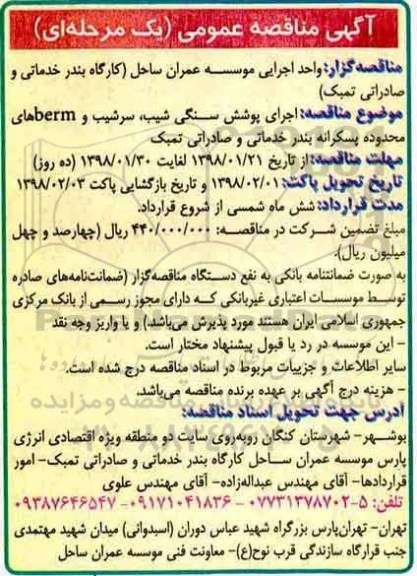 آگهی مناقصه عمومی (یک مرحله‌ای)
مناقصه‌گزار: واحد اجرایی موسسه عمران ساحل (کارگاه بندر خدماتی و
صادراتی تمبک)
موضوع مناقصه: اجرای پوشش سنگی شیب، سرشیب و bermهای
محدوده پسکرانه بندر خدماتی و صادراتی تمبک
مهلت مناقصه: از تاریخ ۱۳۹۸/۰۱/۲۱ لغایت ۱۳۹۸/۰۱/۳۰ (ده روز)
تاریخ تحویل پاکت: ۱۳۹۸/۰۲/۰۱ و تاریخ بازگشایی پاکت ۱۳۹۸/۰۲/۰۳
مدت قرارداد: شش ماه شمسی از شروع قرارداد.
مبلغ تضمین شرکت در مناقصه: ۴۴۰/۰۰۰/۰۰۰ ریال (چهارصد و چهل
میلیون ریال).
به صورت ضمانتنامه بانکی به نفع دستگاه مناقصه‌گزار (ضمانت‌نامه‌های صادره
توسط موسسات اعتباری غیربانکی که دارای مجوز رسمی از بانک مرکزی
جمهوری اسلامی ایران هستند مورد پذیرش می‌باشد) و یا واریز وجه نقد
- این موسسه در رد یا قبول پیشنهاد مختار است.
سایر اطلاعات و جزییات مربوط در اسناد مناقصه درج شده است.
- هزینه درج آگهی بر عهده برنده مناقصه می‌باشد.
ادرس جهت تحویل اسناد مناقصه:
بوشهر- شهرستان کنگان روبه‌روی سایت دو منطقه ویژه اقتصادی انرژی
پارس موسسه عمران ساحل کارگاه بندر خدماتی و صادراتی تمبک- امور
قراردادها- آقای مهندس عبداله‌زاده- آقای مهندس علوی
تلفن: ۵-۰۷۷۳۱۳۷۸۷۰۲ -۰۹۱۷۱۰۴۱۸۳۶ -۰۹۳۸۷۶۴۶۵۴۷
تهران- تهران‌پارس بزرگراه شهید عباس دوران (اسبدوانی) میدان شهید مهتمدی
جنب قرارگاه سازندگی قرب نوح(ع)- معاونت فنی موسسه عمران ساحل